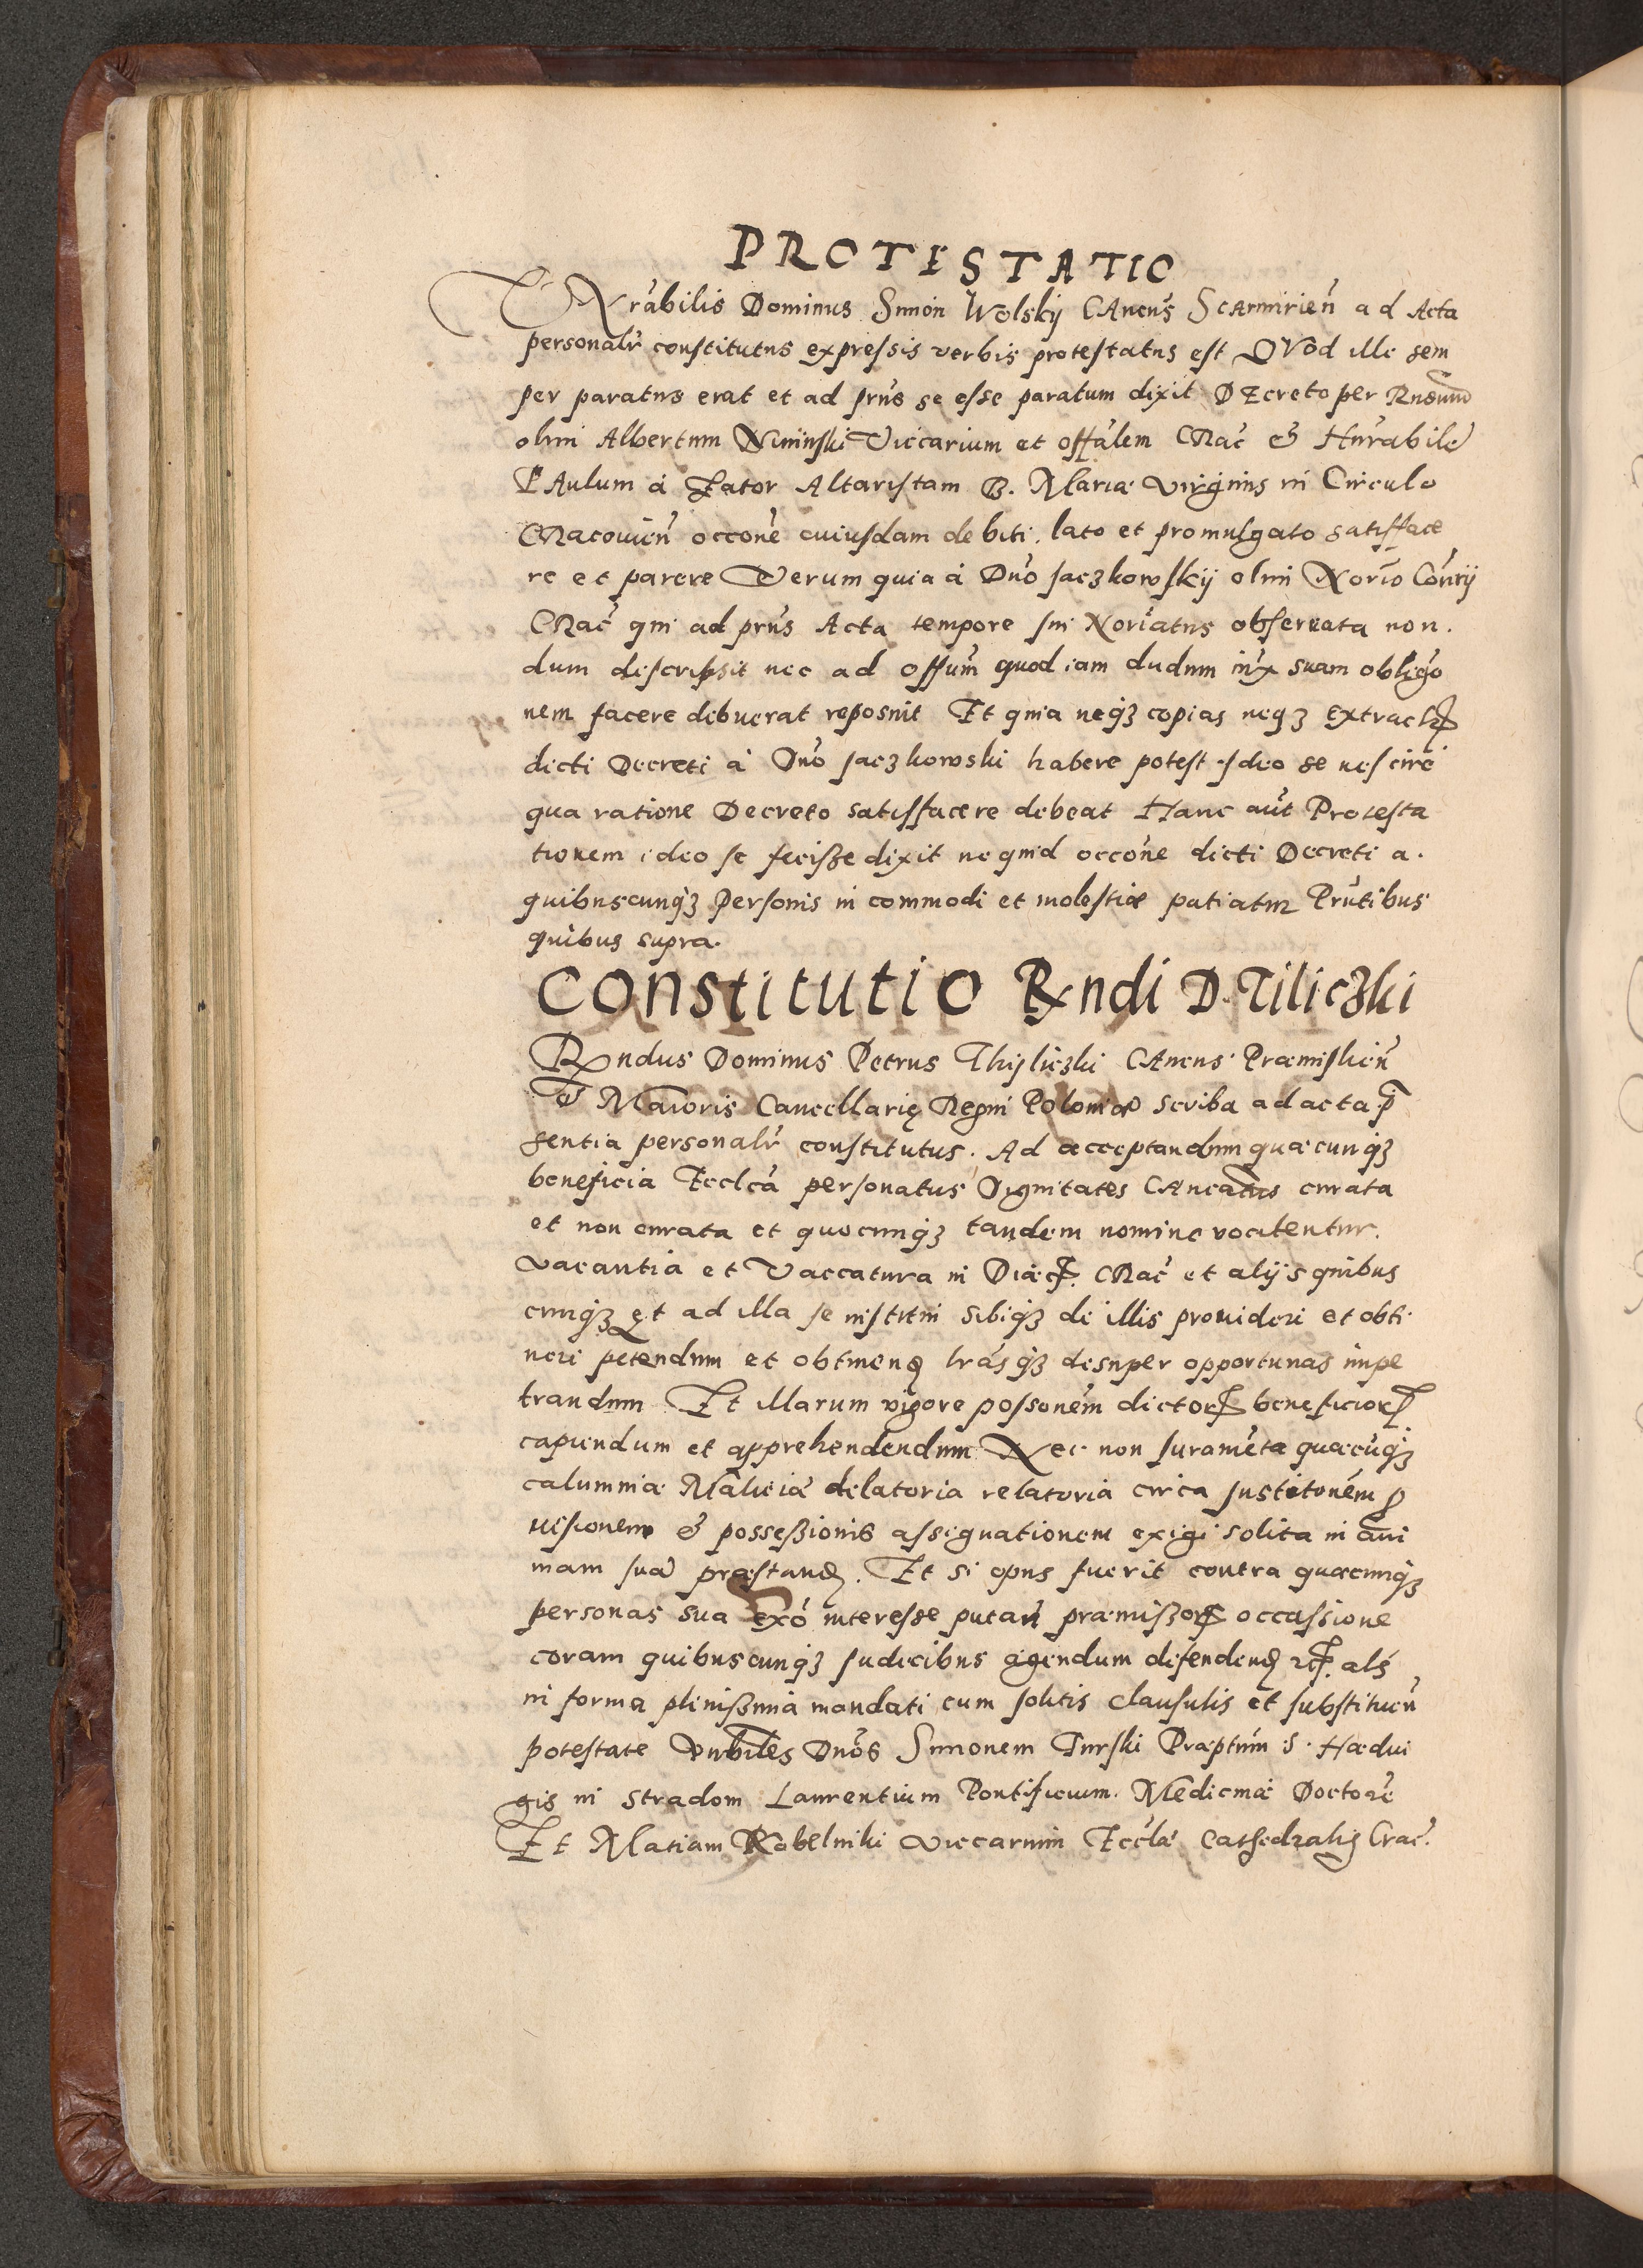 PROTESTATIO
Vnrabilis Dominus Simon Wolskij CAncus Scarmirien ad Acta
personalr constitutus expressis verbis protestatus est QVod ille sem
per paratus erat et ad prns se esse paratum dixit DEcreto per Rnsum
olim Albertum Nininski Viccarium et offalem CRac & Hnrabile
PAulum à Zator Altaristam B. Mariæ Virginis in Circulo
CRacouien occone cuiusdam debiti. lato et promulgato satisface
re et parere Verum quia à Dno Jaczkowskij olim Norio Contij
CRac qui ad prns Acta tempore sui Noriatus obseruata non.
dum descripsit nec ad offum quod iam dudum inx suam obligo
nem facere debuerat reposuit Et quia neq3 copias neq3 extract
dicti Decreti à Dno Jaczkowski habere potest Ideo se nescire
qua ratione Decreto satisfacere debeat Hanc aut Protesta
tionem ideo se fecisse dixit ne quid occone dicti Decreti a.
quibuscunq3 Personis in commodi et molestiæ patiatur Prntibus
quibus supra.
Constitutio Rndi D. Tiliczki
Rndus Dominus Petrus Thijliczki CAncus Præmislien
& Maioris Cancellarię Regni Poloniæ Scriba ad acta p
sentia personalr constitutus. Ad acceptandum quæcunq3
beneficia Eccleâ personatus Dignitates CAncatus curata
et non curata et quocunq3 tandem nomine vocitentur.
vacantia et Vaccatura in Diæc. CRac et alijs quibus
cunq3 et ad illa se institui sibiq3 de illis prouideri et obti
neri petendum et obtinend lrasq3 desuper opportunas impe
trandum Et illarum vigore possonem dictor beneficior
capiendum et apprehendendum Nec non Juramenta quæcuq3
calumniæ Maliciæ delatoria relatoria circa Institonem p
uisionem & possessionis assignationem exigi solita in ani
mam suã præstand. Et si opus fuerit contra quæcunq3
personas sua exo interesse putan præmissor occassione
coram quibuscunq3 Judicibus agendum defendend etc. als
in forma plenissima mandati cum solitis clausulis et substituen
potestate Vnbiles Dnos Simonem Turski Præptum S. Hædui
gis in Stradom Laurentium Pontificium. Medicinæ Doctore
Et Matiam Kobelniki Viccarium Eccla Cathedralis Crac.